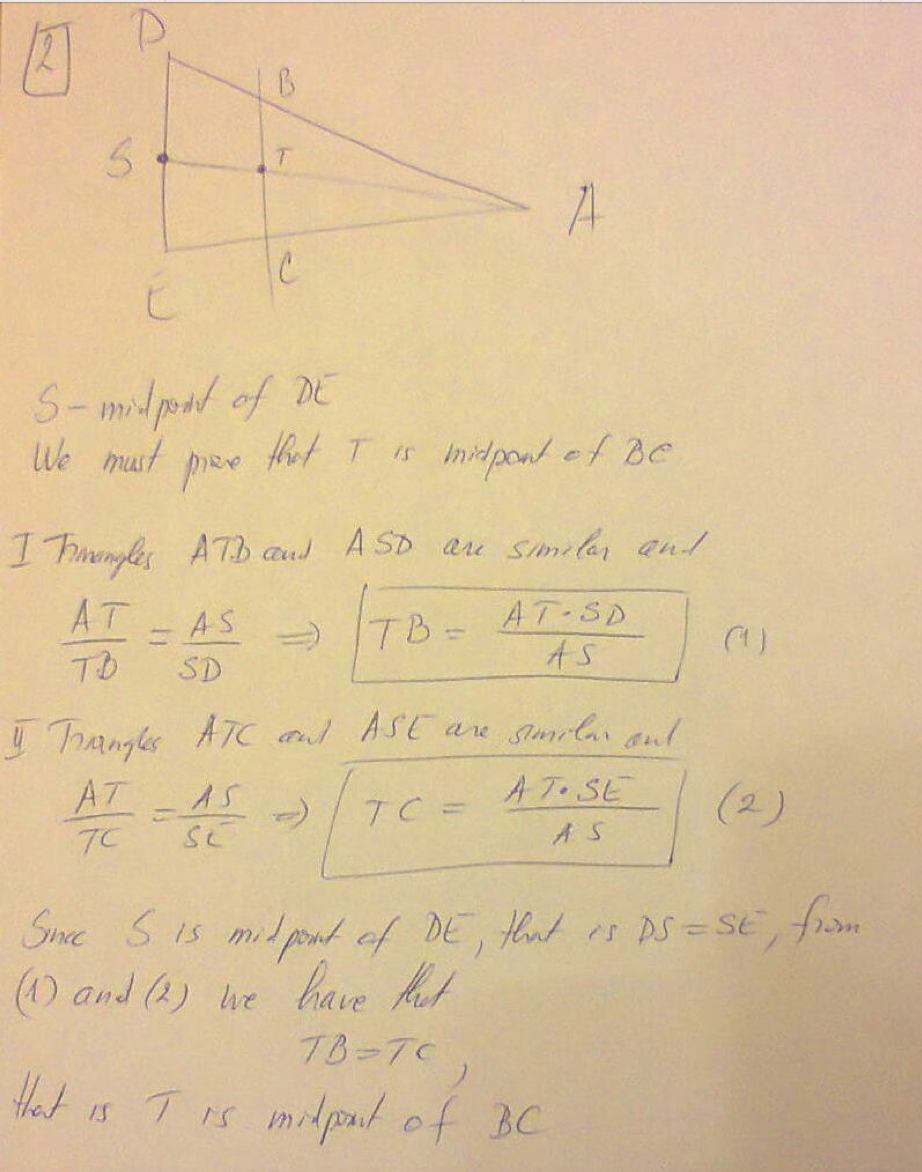 2
D
B
S
T
A
E
C
S - midpoint of DE
We must prove that T is midpoint of BC
I Triangles ATB and ASD are similar and
AT/TB = AS/SD ⇒ TB = AT·SD/AS (1)
II Triangles ATC and ASE are similar and
AT/TC = AS/SE ⇒ TC = AT·SE/AS (2)
Since S is midpoint of DE, that is DS = SE, from
(1) and (2) we have that
TB = TC,
that is T is midpoint of BC